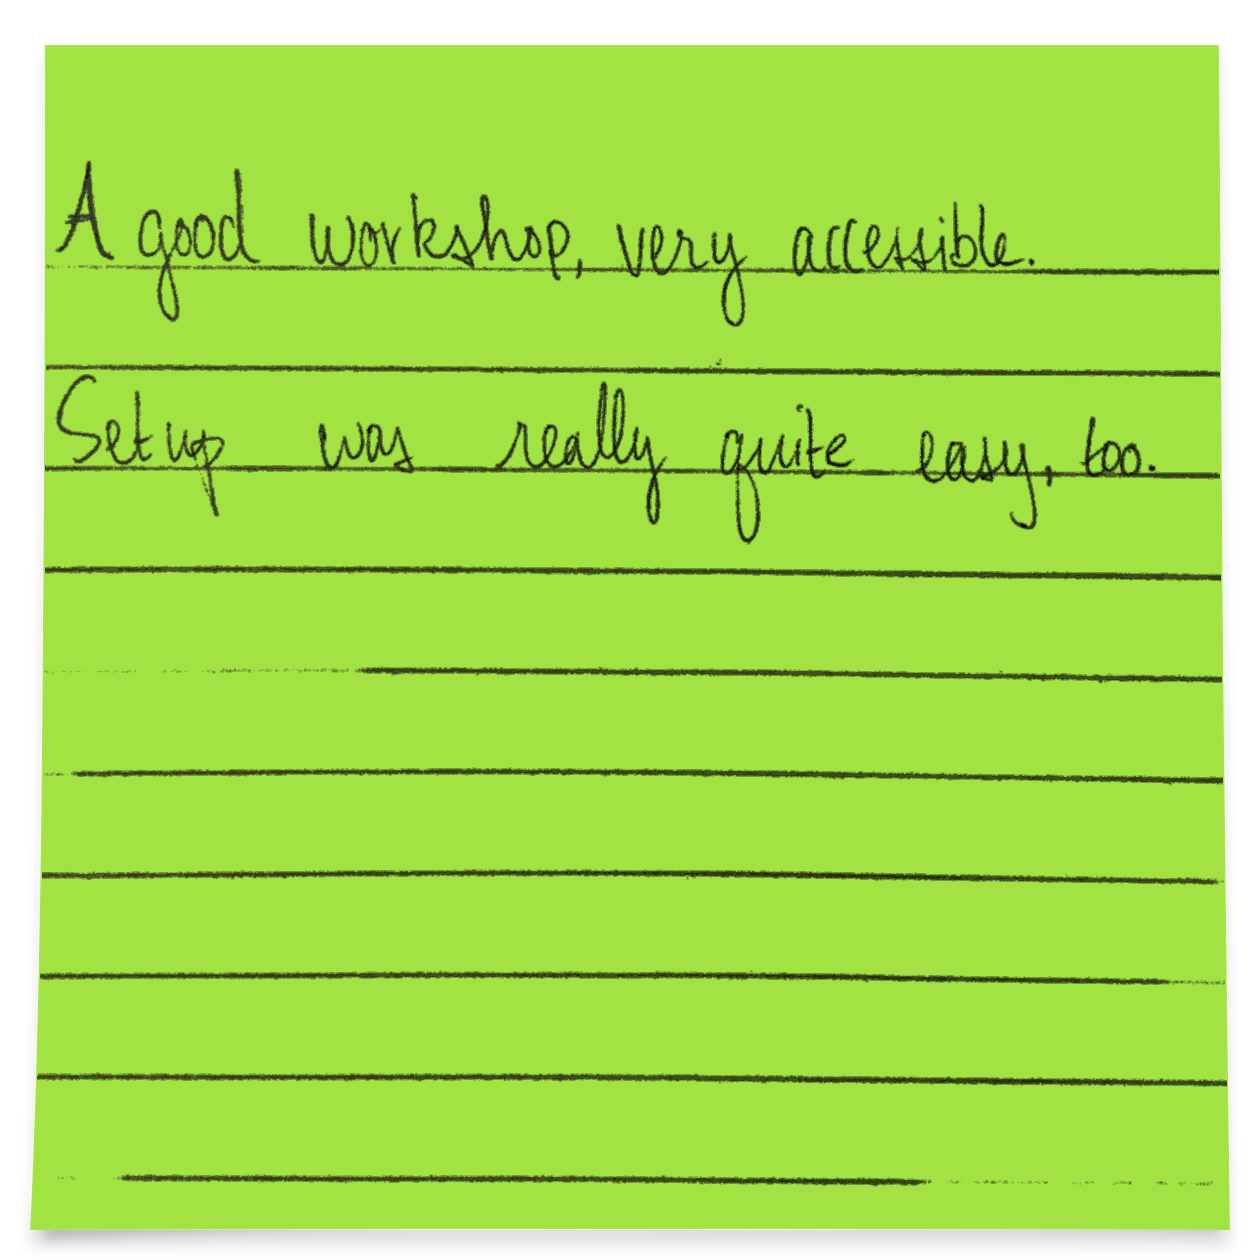 A good workshop, very accessible.
Setup was really quite easy, too.